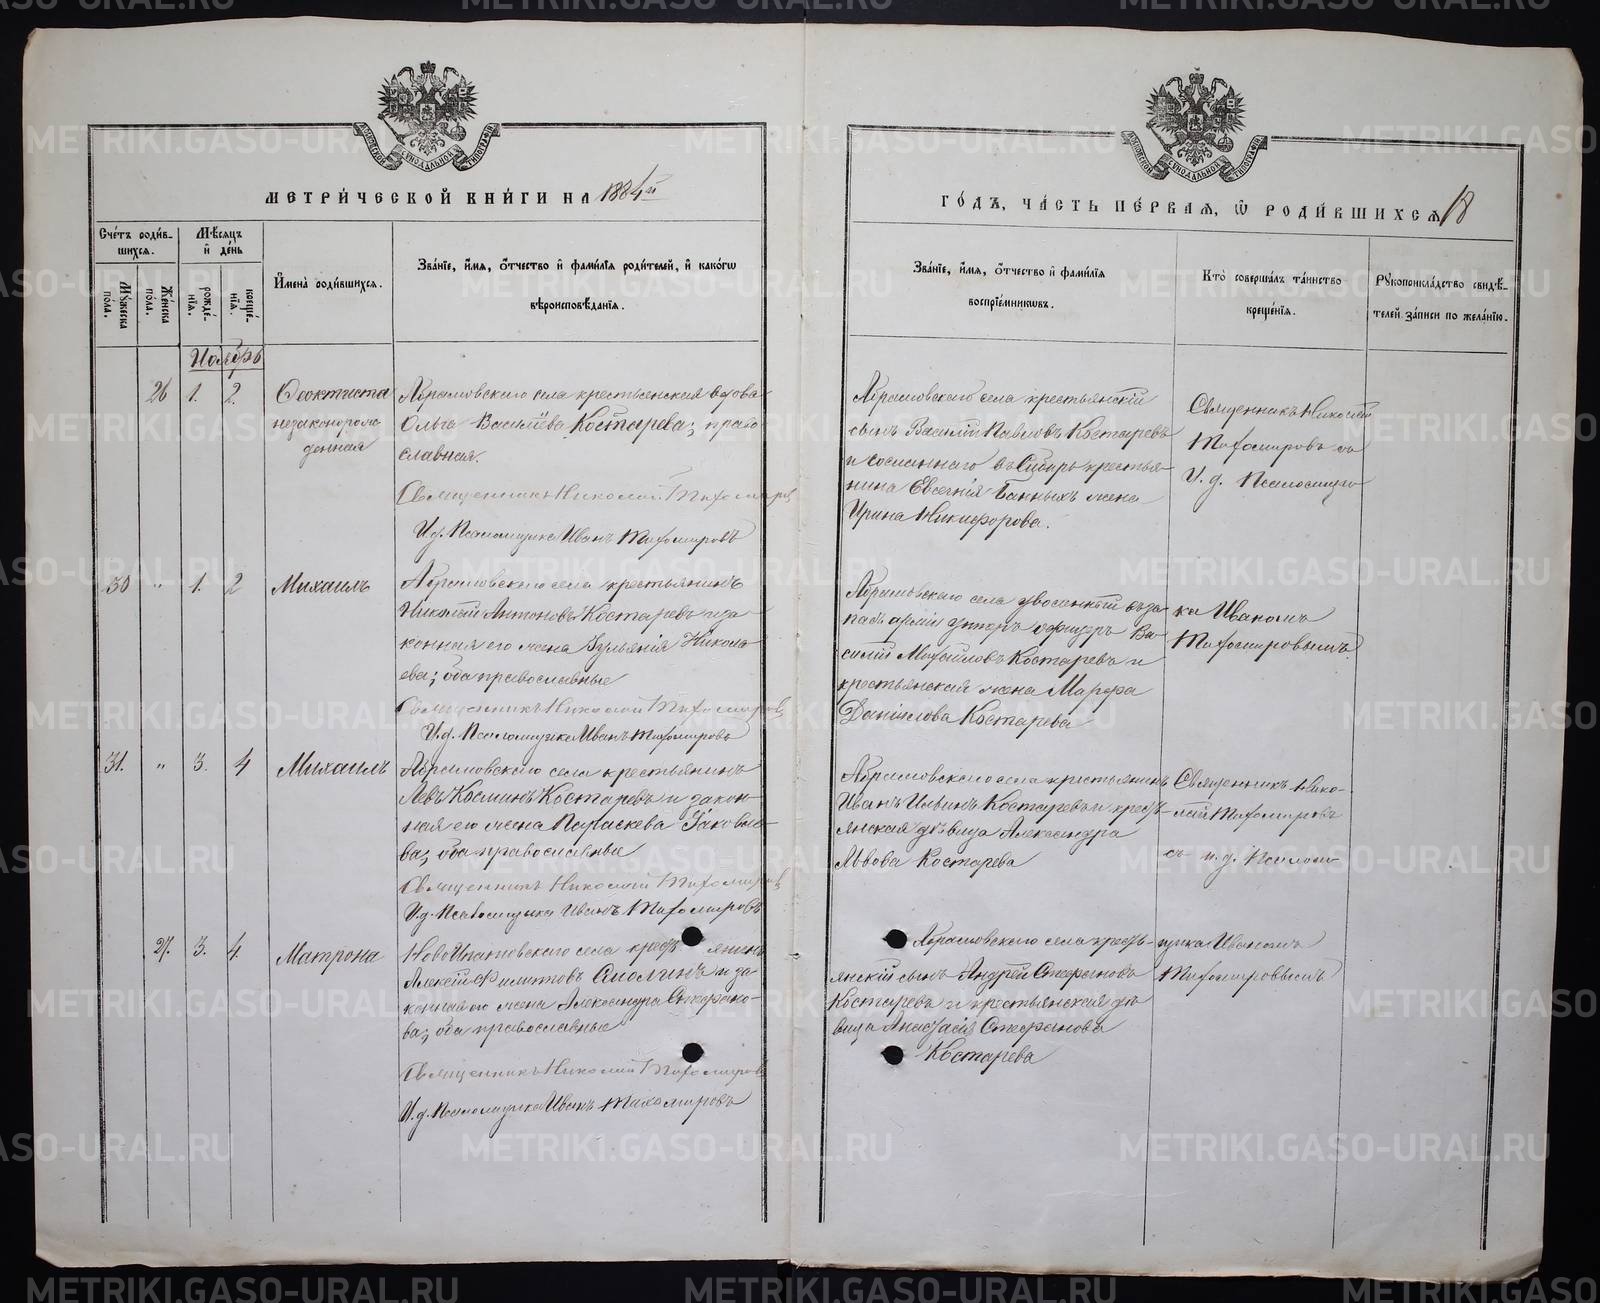 МЕТРИ́ЧЕСКОЙ КНИ́ГИ НА 1884й
ГО́ДЪ, ЧА́СТЬ ПЕ́РВАЯ, Ѡ РОДИ́ВШИХСЯ 18
МОСКОВСКОЙ СѴНОДАЛЬНОЙ ТИПОГРАФІИ
МОСКОВСКОЙ СѴНОДАЛЬНОЙ ТИПОГРАФІИ
Сче́тъ роди́в-
шихся.
Му́жеска
по́ла.
Же́нска
по́ла.
Мѣ́сяцъ
и́ де́нь
рожде́-
нія.
креще́-
нія.
И́мена̀ роди́вшихся.
Зва́ніе, и́мя, о́тчество и́ фами́лія роди́телей, и́ како́гѡ
вѣроисповѣ́данія.
Зва́ніе, и́мя, о́тчество и́ фами́лія
воспріе́мниковъ.
Кто̀ соверша́лъ та́инство
креще́нія.
Рукоприкла́дство свидѣ́-
телей за́писи по жела́нію.
Ноябрь
26 1. 2. Ѳеоктиста
незаконорож
денная
Абрамовскаго села крестьянская вдова
Ольга Василіева Костарева; право
славная.
Священникъ Николай Тихомиров
И.д. Псаломщика Иванъ Тихомировъ
Абрамовскаго села крестьянскій
сынъ Василій Павловъ Костаревъ
и сосланнаго въ Сибирь крестья-
нина Евгенія Банныхъ жена
Ирина Никифорова.
Священникъ Николай
Тихомировъ съ
И. д. Псаломщи-
30 " 1. 2 Михаилъ
Абрамовскаго села крестьянинъ
Николай Антоновъ Костаревъ и за-
конная его жена Іульянія Никола-
ева; оба православные
Священникъ Николай Тихомиров
И.д. Псаломщика Иванъ Тихомировъ
Абрамовскаго села уволенный въ за-
пасъ арміи унтеръ офицеръ Ва-
силій Михайловъ Костаревъ и
крестьянская жена Марфа
Даніилова Костарева
ка Иваномъ
Тихомировымъ.
31. " 3. 4 Михаилъ
Абрамовскаго села крестьянинъ
Левъ Косминъ Костаревъ и закон-
ная его жена Параскева Іаковле-
ва; оба православные
Священникъ Николай Тихомиров
И.д. Псаломщика Иванъ Тихомировъ
Абрамовскаго села крестьянинъ
Иванъ Ильинъ Костаревъ и кресть-
янская дѣвица Александра
Львова Костарева
Священникъ Нико-
лай Тихомировъ
съ и. д. Псалом-
27. 3. 4. Матрона
Ново Ипатовскаго села кресть янинъ
Алексѣй Филиповъ и за-
конная его жена Александра Стефано-
ва; оба православные
Священникъ Николай Тихомиров
И.д. Псаломщика Иванъ Тихомировъ
Абрамовскаго села кресть-
янскій сынъ Андрей Стефановъ
Костаревъ и крестьянская дѣ-
вица Анастасія Стефанова
Костарева
щика Иваномъ
Тихомировымъ
METRIKI.GASO-URAL.RU